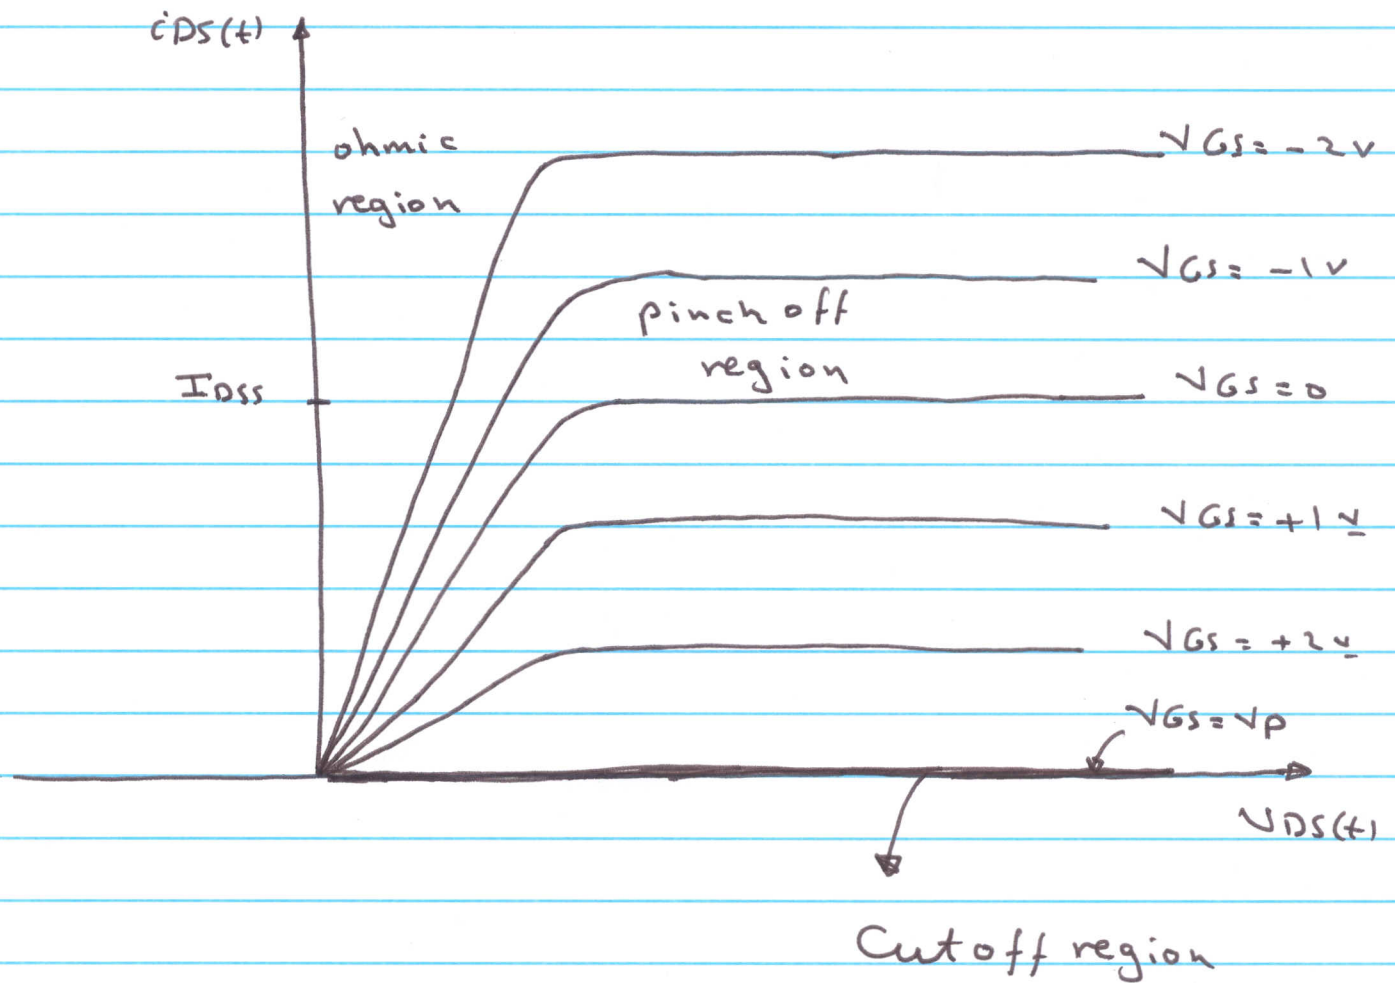 iDS(t)
ohmic
region
VGS= -2v
VGS= -1v
pinch off
region
IDSS
VGS=0
VGS= +1v
VGS= +2v
VGS=Vp
VDS(t)
Cutoff region